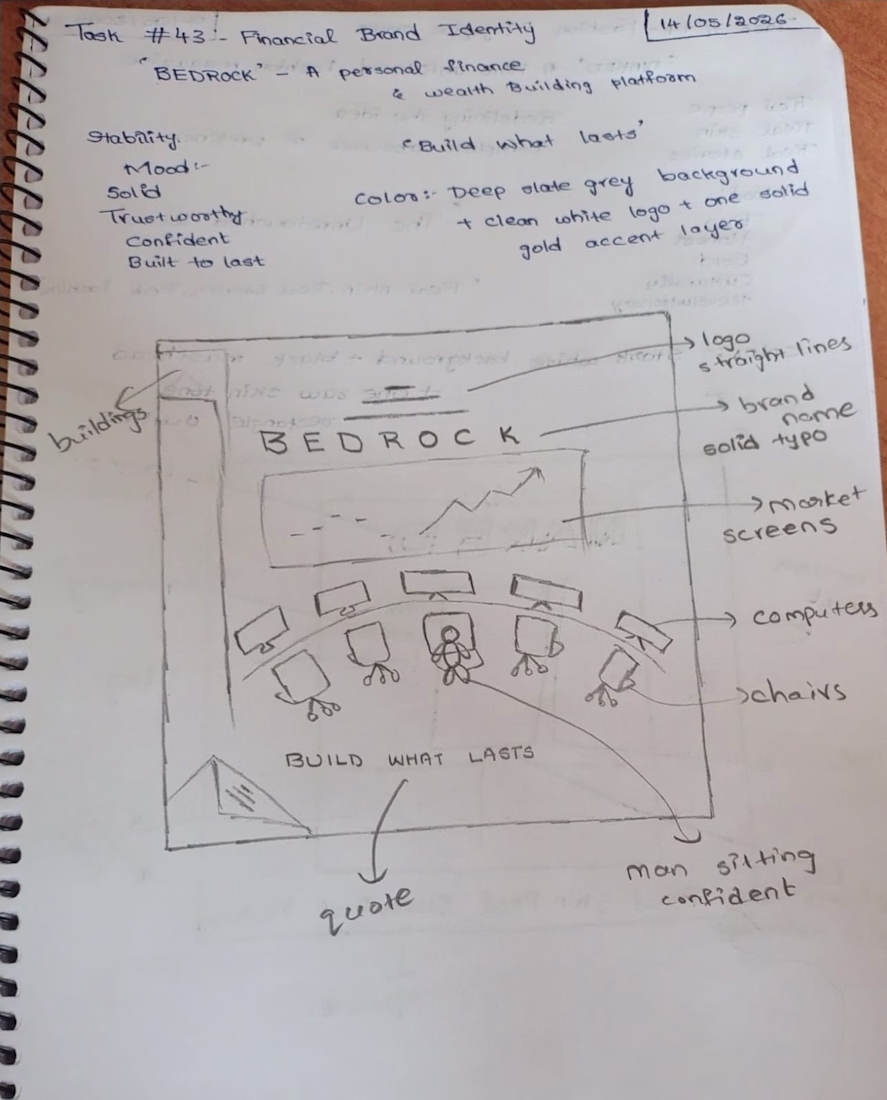 Task #43:- Financial Brand Identity
14/05/2026.
"BEDROCK" - A personal finance
& wealth Building platform
Stability.
Mood:-
Solid
Trustworthy
Confident
Built to last
"Build what lasts"
Color:- Deep slate grey background
+ clean white logo + one solid
gold accent layer
logo
straight lines
buildings
brand
name
solid typo
BEDROCK
market
screens
computers
chairs
BUILD WHAT LASTS
man sitting
confident
quote